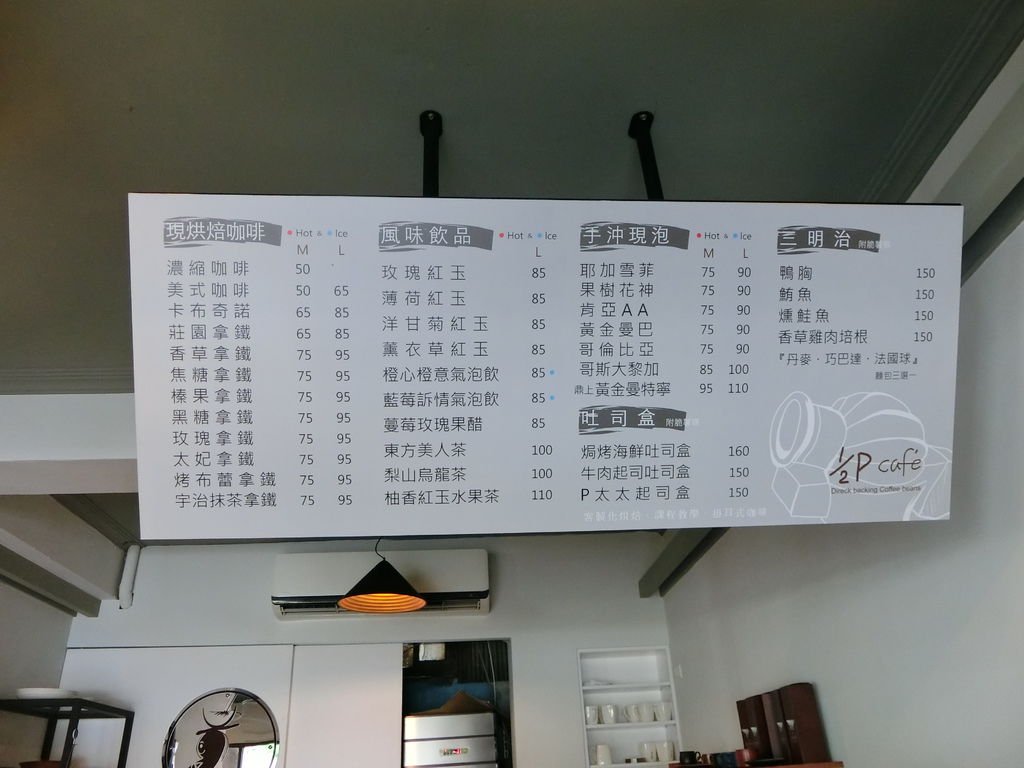 現烘焙咖啡 Hot & Ice
M L
濃縮咖啡 50
美式咖啡 50 65
卡布奇諾 65 85
莊園拿鐵 65 85
香草拿鐵 75 95
焦糖拿鐵 75 95
榛果拿鐵 75 95
黑糖拿鐵 75 95
玫瑰拿鐵 75 95
太妃拿鐵 75 95
烤布蕾拿鐵 75 95
宇治抹茶拿鐵 75 95
風味飲品 Hot & Ice
L
玫瑰紅玉 85
薄荷紅玉 85
洋甘菊紅玉 85
薰衣草紅玉 85
橙心橙意氣泡飲 85
藍莓訴情氣泡飲 85
蔓莓玫瑰果醋 85
東方美人茶 100
梨山烏龍茶 100
柚香紅玉水果茶 110
手沖現泡 Hot & Ice
M L
耶加雪菲 75 90
果樹花神 75 90
肯亞AA 75 90
黃金曼巴 75 90
哥倫比亞 75 90
哥斯大黎加 85 100
鼎上黃金曼特寧 95 110
吐司盒
焗烤海鮮吐司盒 160
牛肉起司吐司盒 150
P太太起司盒 150
客製化烘焙．課程教學．掛耳式咖啡
三明治
鴨胸 150
鮪魚 150
燻鮭魚 150
香草雞肉培根 150
『丹麥．巧巴達．法國球』
麵包三選一
1/2 P café
Direck backing Coffee beans